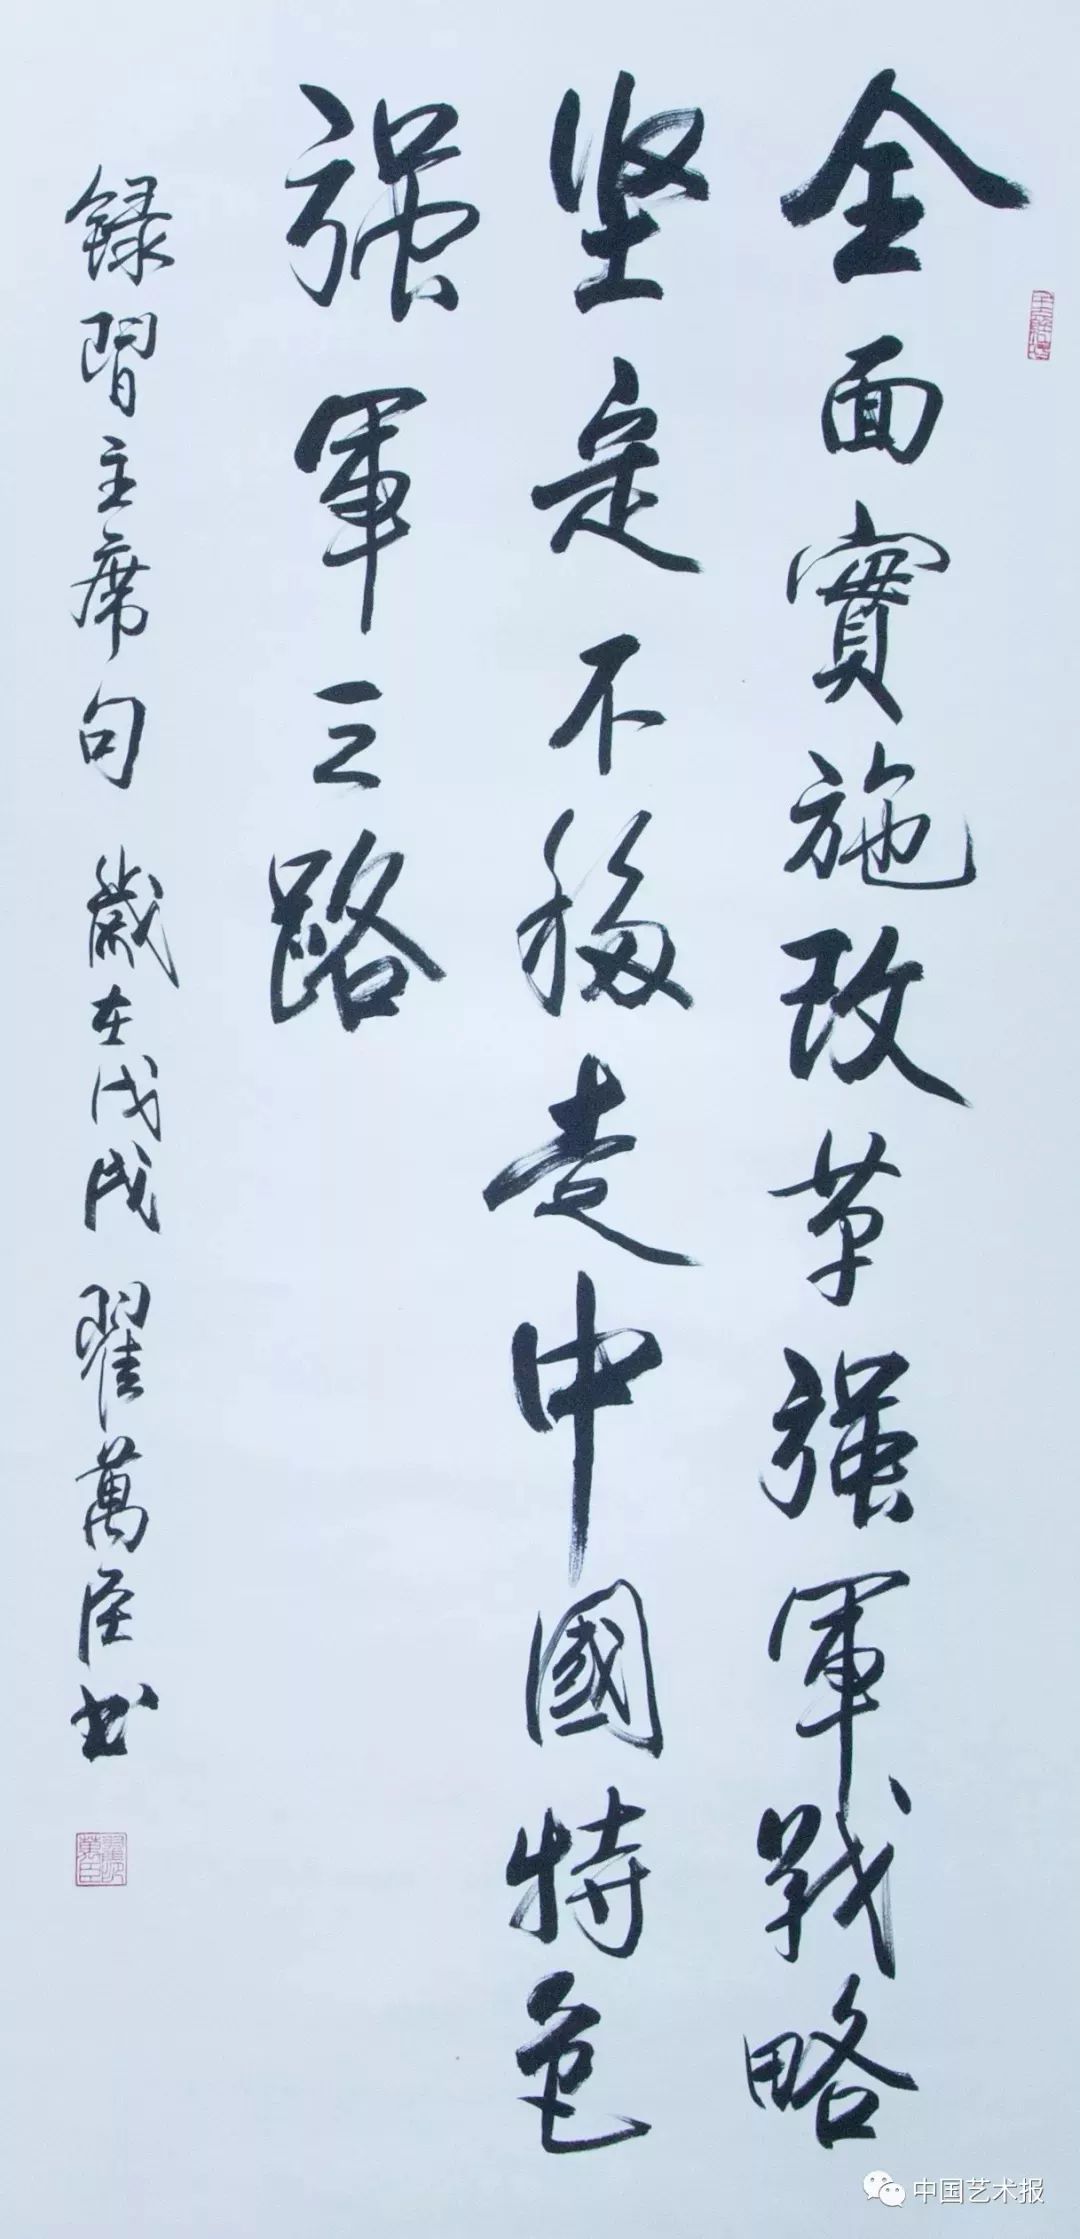 全面實施改革强軍戰略
坚定不移走中國特色
强軍之路
録習主席句 歲在戊戌 翟萬臣书
翟萬臣
中国艺术报